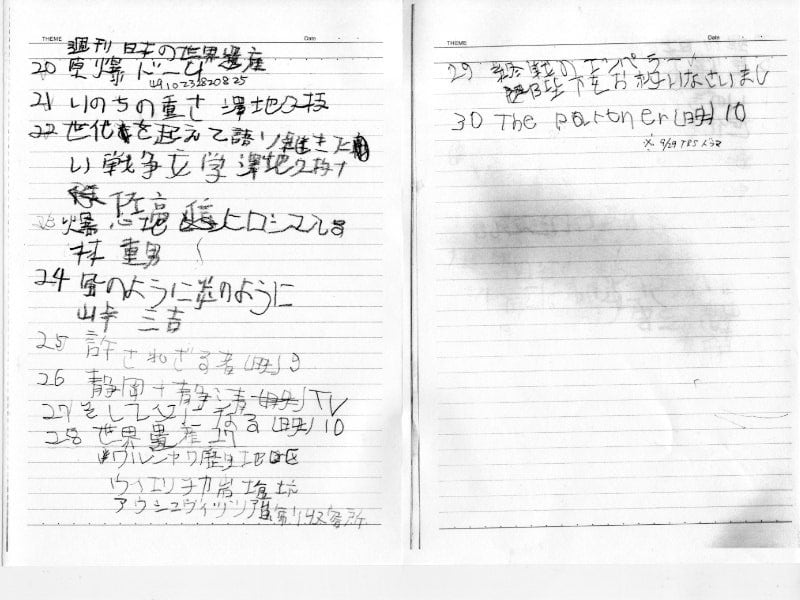 THEME Date
週刊 日本の世界遺産
20 原爆ドーム
4910233820825
21 いのちの重さ 澤地久枝
22 世代を超えて語り継ぎた
い戦争文学 澤地久枝
佐高 信
爆心地 ヒロシマ
林 重男
24 風のように炎のように
山岸 三吉
25 許されざる者(映) 9
26 静岡 + 静清 (映) TV
27 そして父になる (映) 10
28 世界遺産 27
ワルシャワ歴史地区
ヴィエリチカ岩塩坑
アウシュヴィッツ 収容所
THEME Date
29 終戦のエンペラー
陛下をお救いなさいまし
30 The partner (映) 10
※ 9/29 TBSドラマ